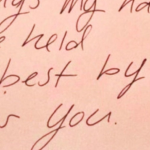 my ha
held
best by
you.